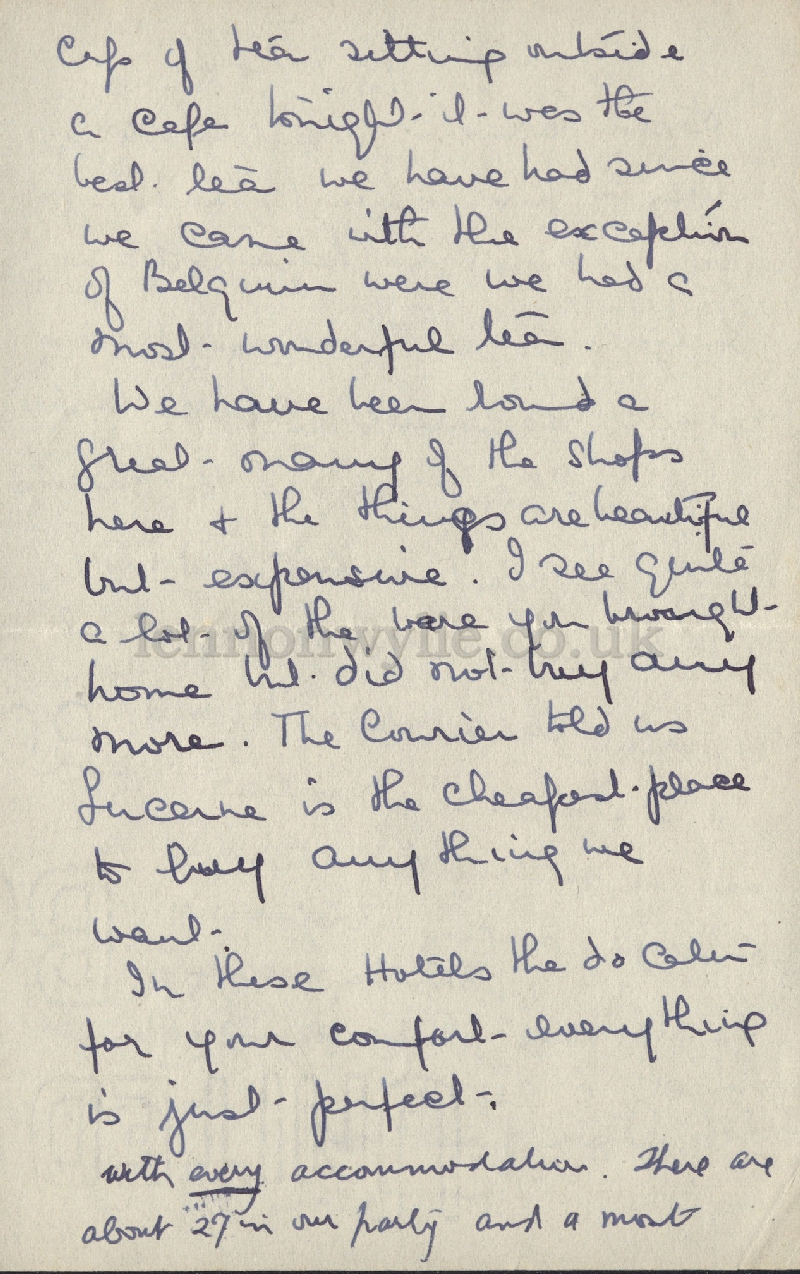 Cup of tea sitting outside
a Cafe tonight it was the
best tea we have had since
we came with the exception
of Belguim were we had a
most wonderful tea.
We have been round a
great many of the shops
here + the things are beautiful
but expensive. I see quite
a lot of the ware you brought
lennonwylie.co.uk
home but did not buy any
more. The Courier told us
Lucerne is the cheapest place
to buy anything we
want.
In these Hotels the do cater
for your comfort everything
is just perfect.
with every accommodation. There are
about 27 in our party and a most